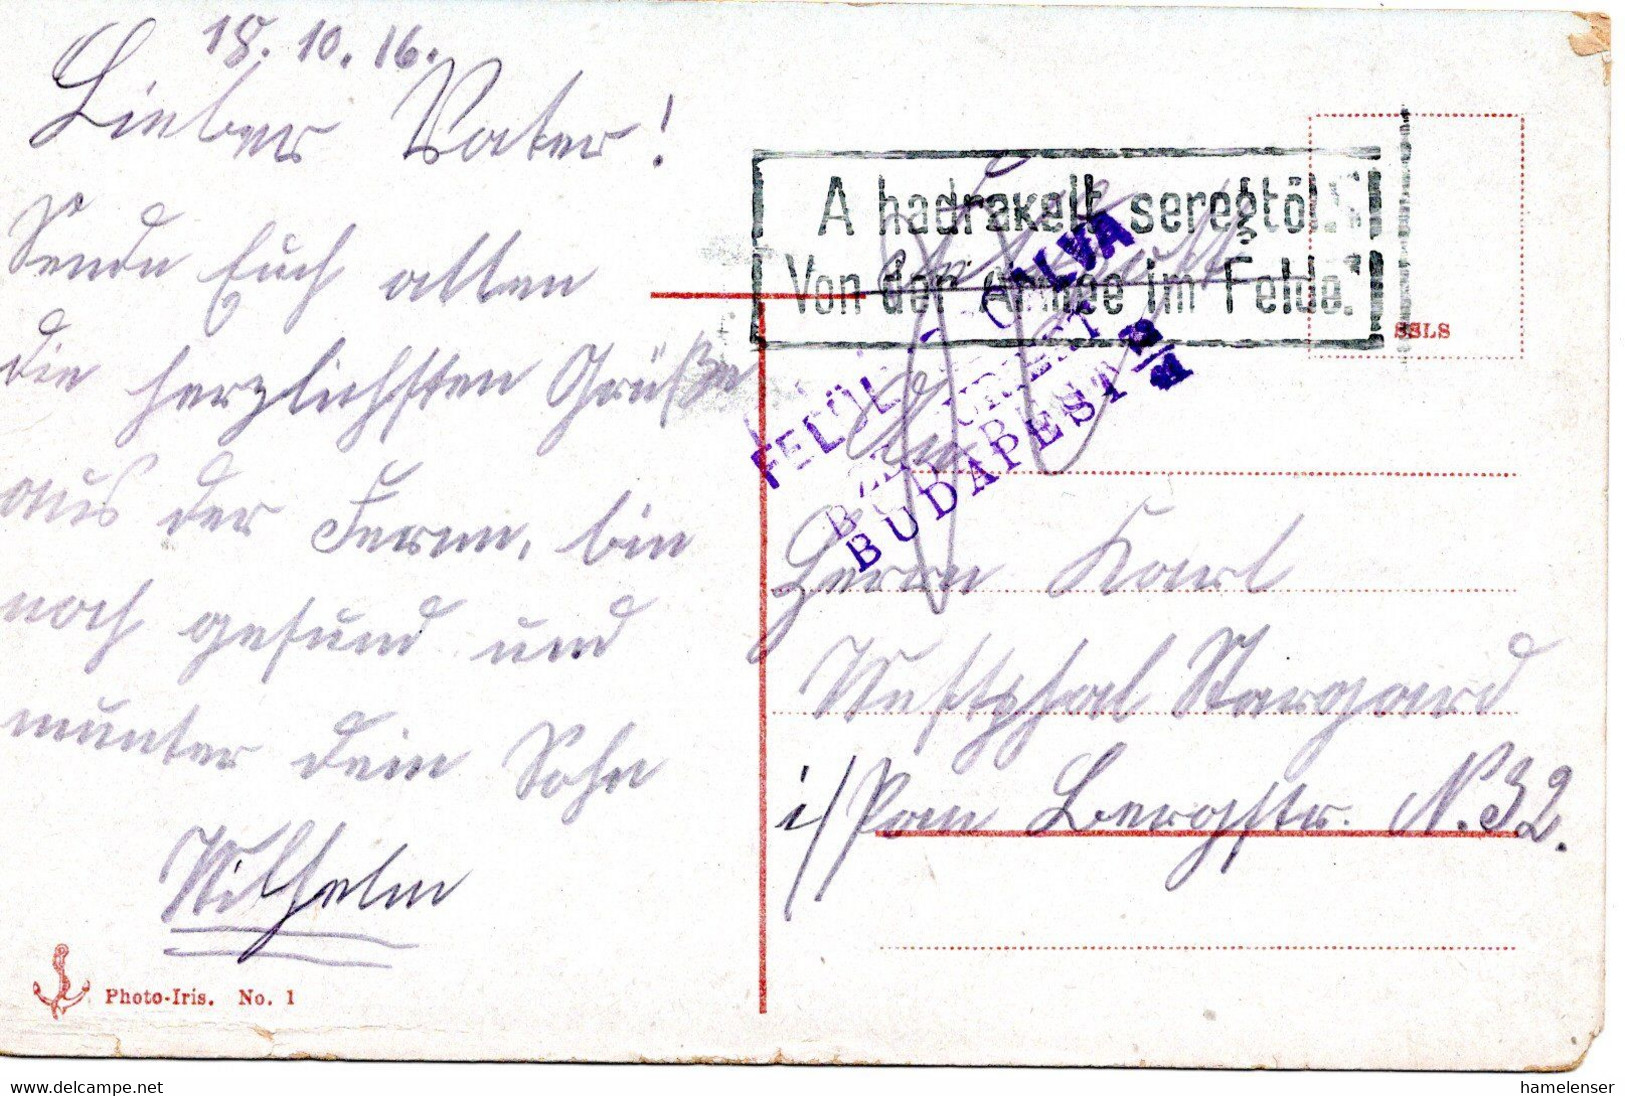 18. 10. 16.
Lieber Vater!
Sende Euch allen
die herzlichsten Grüße
aus der Ferne, bin
noch gesund und
munter dein Sohn
Wilhelm
Photo-Iris. No. 1
A hadrakelt seregtöl.
Von der Armee im Felde.
SSLS
BUDAPEST
An
Herrn Karl
Westphal Stargard
i/Pom Bergstr. N. 32.
delcampe.net
hamelenser